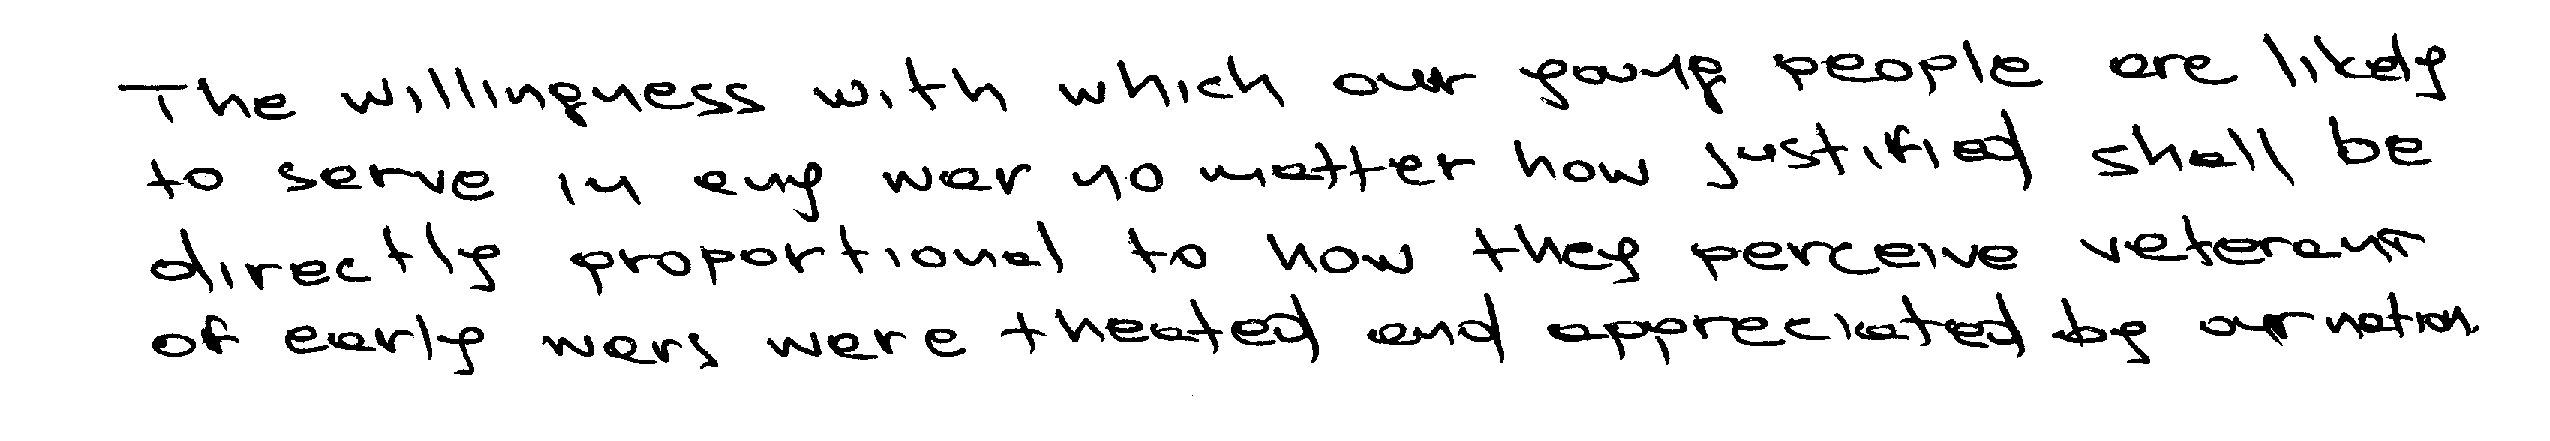 The willingness with which our young people are likely
to serve in any war no matter how justified shall be
directly proportional to how they perceive veterans
of early wars were theated and appreciated by our nation.